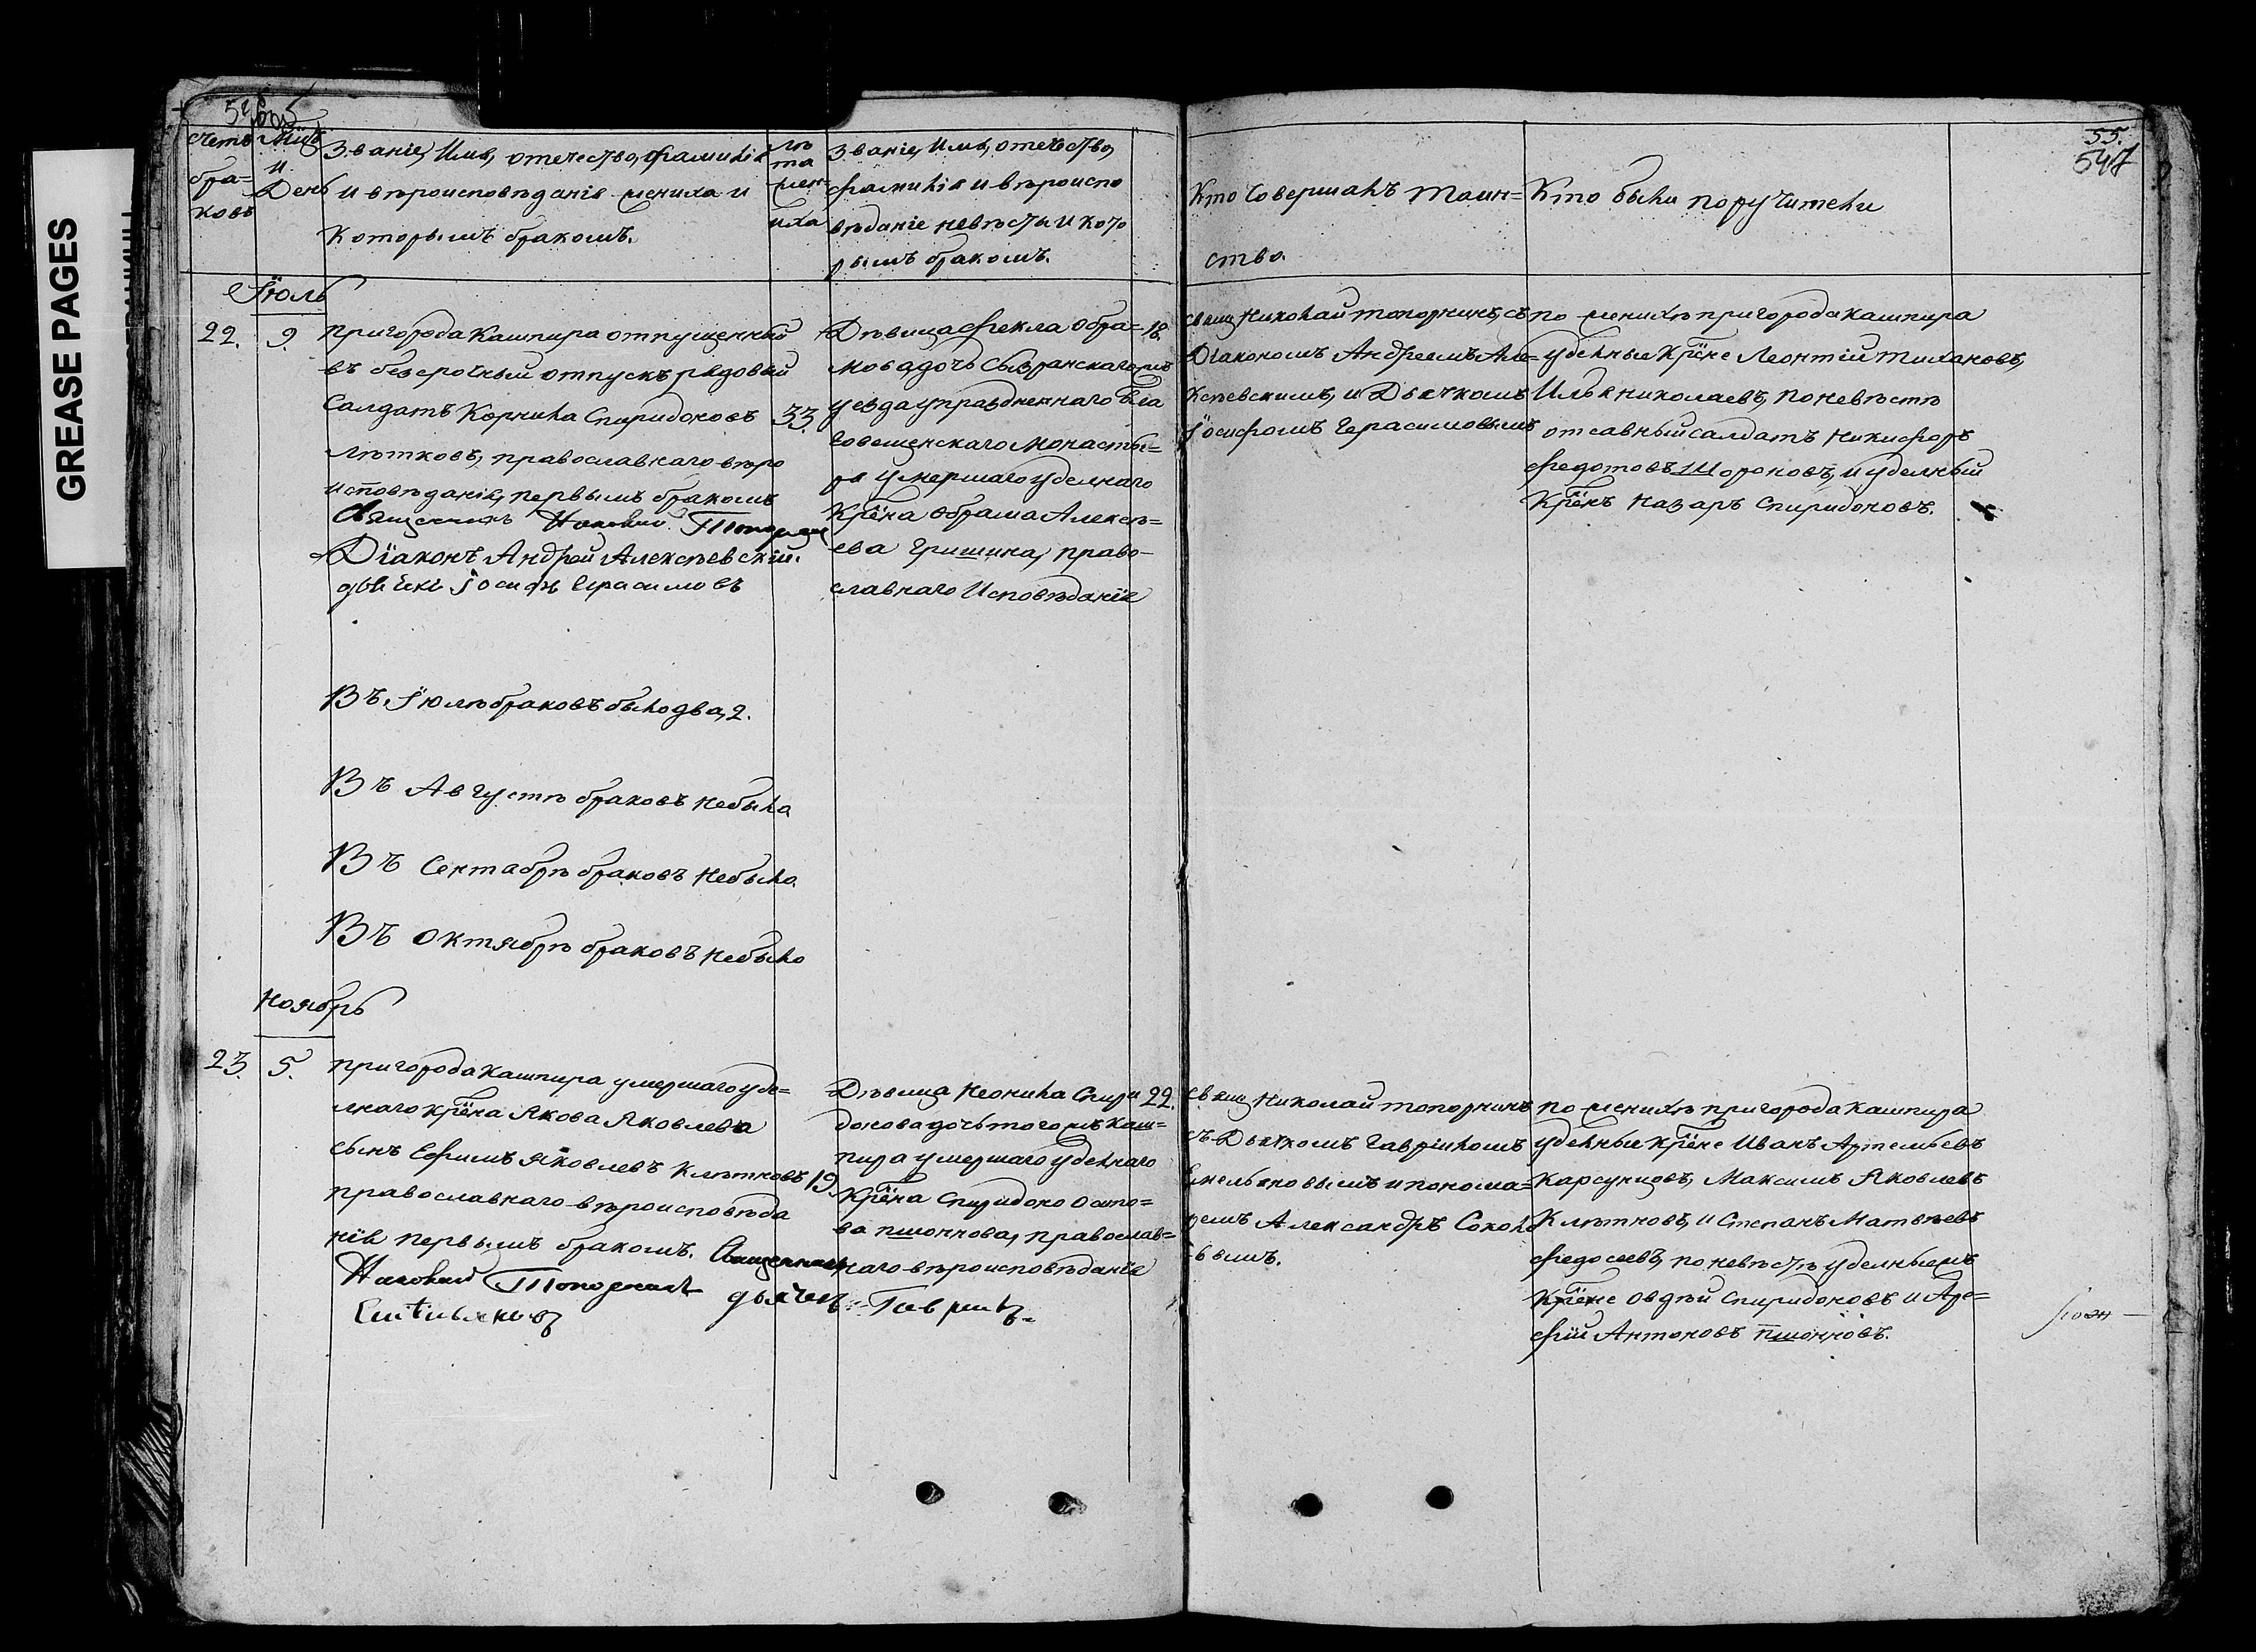 GREASE PAGES
счетъ бра=ковъ
Мцъ и День
Званіе, Имя, отечество, фамилія
и вѣроисповѣданія жениха и
которымъ бракомъ.
лѣта жениха
Званіе, Имя, отечество,
фамилія и вѣроиспо
вѣданіе невѣсты и кото
рымъ бракомъ.
Кто совершалъ Таин=
ство.
Кто были поручители
55.
547
Іюль
22.
9.
пригорода Кашпира отпущенный
въ безсрочный отпускъ рядовый
Салдатъ Корнила Спиридоновъ
Лѣтковъ, православнаго вѣро
исповѣданія, первымъ бракомъ
Священникъ Николай Топорнинъ
Діаконъ Андрей Алексѣевскій.
дьячекъ Іосифъ Герасимовъ
33.
Дѣвица Фекла Обра=
мова дочь Сызранскаго
уезда упраздненнаго Бла
говещенскаго Монасты=
ря умершаго уделнаго
Крѣна Обрама Алексѣ=
ева Гришина, право-
славнаго Исповѣданія
18.
свящ Николай Топорнинъ, съ
Діакономъ Андреемъ Але=
ксѣевскимъ, и Дьячкомъ
Іосифомъ Герасимовымъ
по женихѣ пригорода Кашпира
удельные Крѣне Леонтій Тихановъ,
Илья Николаевъ, по невѣстѣ
отсавный салдатъ Никифоръ
Федотовъ Шороховъ, и уделный
Крѣнъ Назаръ Спиридоновъ.
Въ Іюлѣ браковъ было два, 2.
Въ Августѣ браковъ небыло
Въ Сентабрѣ браковъ небыло.
Въ Октябрѣ браковъ небыло
Ноябрь
23.
5.
пригорода Кашпира умершаго уде=
лнаго крѣна Якова Яковлева
сынъ Ефимъ Яковлевъ Клѣтновъ
православнаго вѣроисповѣда
нія первымъ бракомъ. Священникъ
Николай Топорнинъ дьячекъ Гаврилъ
Емельяновъ
19.
Дѣвица Неонила Спири
донова дочь того жъ Каш=
пира умершаго уделнаго
Крѣна Спиридоно Осипо=
ва Пшоннова, православ=
наго вѣроисповѣданія
22.
свящ Николай Топорнинъ
съ Дьячкомъ Гавріиломъ
Емельяновымъ и понома=
ремъ Александръ Соколо
вымъ.
по женихѣ пригорода Кашпира
уделные Крѣне Иванъ Артемьевъ
Карсунцовъ, Максимъ Яковлевъ
Клѣтновъ, и Степанъ Матвѣевъ
Федосеевъ, по невѣстѣ уделныемъ
Крѣне Овдѣй Спиридоновъ и Аре=
фій Антоновъ Пшонновъ.